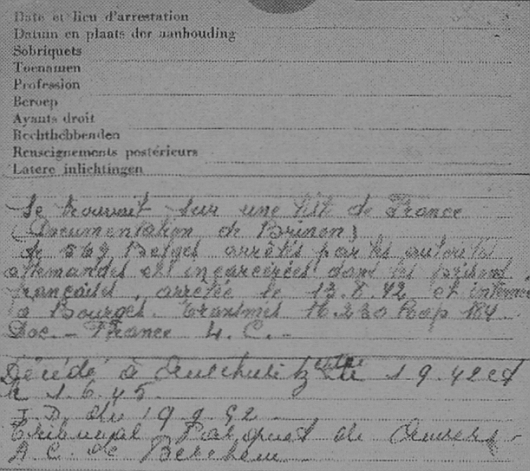 Date et lieu d'arrestation
Datum en plaats der aanhouding
Sobriquets
Toenamen
Profession
Beroep
Ayants droit
Rechthebbenden
Renseignements postérieurs
Latere inlichtingen
Se trouvait sur une list de France
(Documentation de Brinon)
de 569 Belges arrêtés par les autorités
allemandes et incarcérées dans les prisons
françaises, arrêtée le 13.8.42 et internée
à Bourges. Transmis 16.220 Rap 184
Doc. - France 4. C. -
Décédé à Auschwitz entre le 1 9.42 et
le 1.6.45.
J.D. du 19.9.52
Tribunal Parquet de Anvers -
A.C. de Berchem